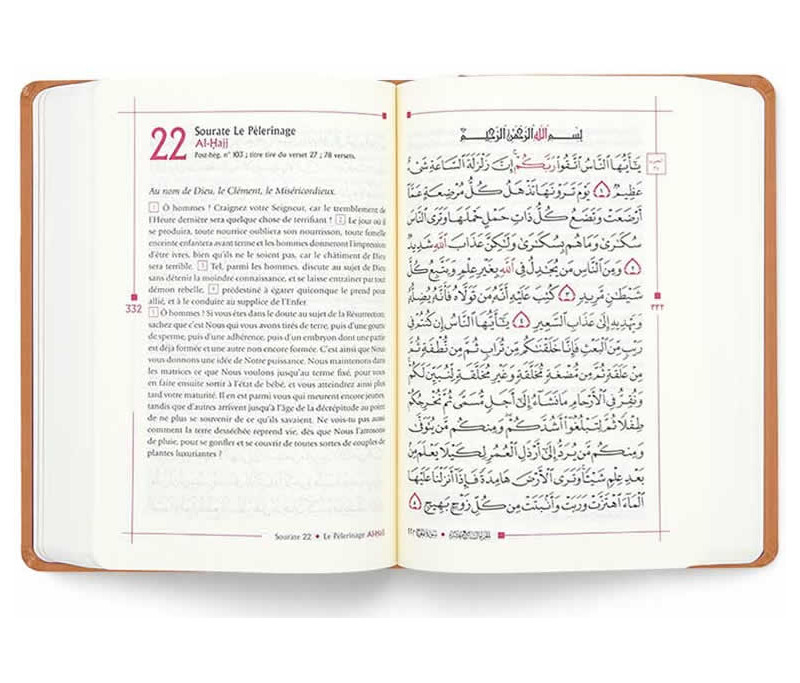 22
Sourate Le Pèlerinage
Al-Ḥajj
Post-hég. n° 103 ; titre tiré du verset 27 ; 78 versets.
Au nom de Dieu, le Clément, le Miséricordieux.
1 Ô hommes ! Craignez votre Seigneur, car le tremblement de
l'Heure dernière sera quelque chose de terrifiant ! 2 Le jour où il
se produira, toute nourrice oubliera son nourrisson, toute femelle
enceinte enfantera avant terme et les hommes donneront l'impression
d'être ivres, bien qu'ils ne le soient pas, car le châtiment de Dieu
sera terrible. 3 Tel, parmi les hommes, discute au sujet de Dieu
sans détenir la moindre connaissance, et se laisse entraîner par tout
démon rebelle, 4 prédestiné à égarer quiconque le prend pour
allié, et à le conduire au supplice de l'Enfer.
5 Ô hommes ? Si vous êtes dans le doute au sujet de la Résurrection,
sachez que c'est Nous qui vous avons tirés de terre, puis d'une goutte
de sperme, puis d'une adhérence, puis d'un embryon dont une partie
est déjà formée et une autre non encore formée. C'est ainsi que Nous
vous donnons une idée de Notre puissance. Nous maintenons dans
les matrices ce que Nous voulons jusqu'au terme fixé, pour vous
en faire ensuite sortir à l'état de bébé, et vous atteindrez ainsi plus
tard votre maturité. Il en est parmi vous qui meurent encore jeunes
tandis que d'autres arrivent jusqu'à l'âge de la décrépitude au point
de ne plus se souvenir de ce qu'ils savaient. Ne vois-tu pas aussi
comment la terre desséchée reprend vie, dès que Nous l'arrosons
de pluie, pour se gonfler et se couvrir de toutes sortes de couples de
plantes luxuriantes ?
332
Sourate 22 • Le Pèlerinage Al-Ḥajj
بِسْمِ اللَّهِ الرَّحْمَٰنِ الرَّحِيمِ
يَٰٓأَيُّهَا ٱلنَّاسُ ٱتَّقُوا۟ رَبَّكُمْ إِنَّ زَلْزَلَةَ ٱلسَّاعَةِ شَىْءٌ
عَظِيمٌ ١ يَوْمَ تَرَوْنَهَا تَذْهَلُ كُلُّ مُرْضِعَةٍ عَمَّآ
أَرْضَعَتْ وَتَضَعُ كُلُّ ذَاتِ حَمْلٍ حَمْلَهَا وَتَرَى ٱلنَّاسَ
سُكَٰرَىٰ وَمَا هُم بِسُكَٰرَىٰ وَلَٰكِنَّ عَذَابَ ٱللَّهِ شَدِيدٌ
٢ وَمِنَ ٱلنَّاسِ مَن يُجَٰدِلُ فِى ٱللَّهِ بِغَيْرِ عِلْمٍ وَيَتَّبِعُ كُلَّ
شَيْطَٰنٍ مَّرِيدٍ ٣ كُتِبَ عَلَيْهِ أَنَّهُۥ مَن تَوَلَّاهُ فَأَنَّهُۥ يُضِلُّهُۥ
وَيَهْدِيهِ إِلَىٰ عَذَابِ ٱلسَّعِيرِ ٤ يَٰٓأَيُّهَا ٱلنَّاسُ إِن كُنتُمْ فِى
رَيْبٍ مِّنَ ٱلْبَعْثِ فَإِنَّا خَلَقْنَٰكُم مِّن تُرَابٍ ثُمَّ مِن نُّطْفَةٍ ثُمَّ
مِنْ عَلَقَةٍ ثُمَّ مِن مُّضْغَةٍ مُّخَلَّقَةٍ وَغَيْرِ مُخَلَّقَةٍ لِّنُبَيِّنَ لَكُمْ
وَنُقِرُّ فِى ٱلْأَرْحَامِ مَا نَشَآءُ إِلَىٰٓ أَجَلٍ مُّسَمًّى ثُمَّ نُخْرِجُكُمْ
طِفْلًا ثُمَّ لِتَبْلُغُوٓا۟ أَشُدَّكُمْ وَمِنكُم مَّن يُتَوَفَّىٰ
وَمِنكُم مَّن يُرَدُّ إِلَىٰٓ أَرْذَلِ ٱلْعُمُرِ لِكَيْلَا يَعْلَمَ مِنۢ
بَعْدِ عِلْمٍ شَيْـًٔا وَتَرَى ٱلْأَرْضَ هَامِدَةً فَإِذَآ أَنزَلْنَا عَلَيْهَا
ٱلْمَآءَ ٱهْتَزَّتْ وَرَبَتْ وَأَنۢبَتَتْ مِن كُلِّ زَوْجٍۭ بَهِيجٍ ٥
٣٣٢